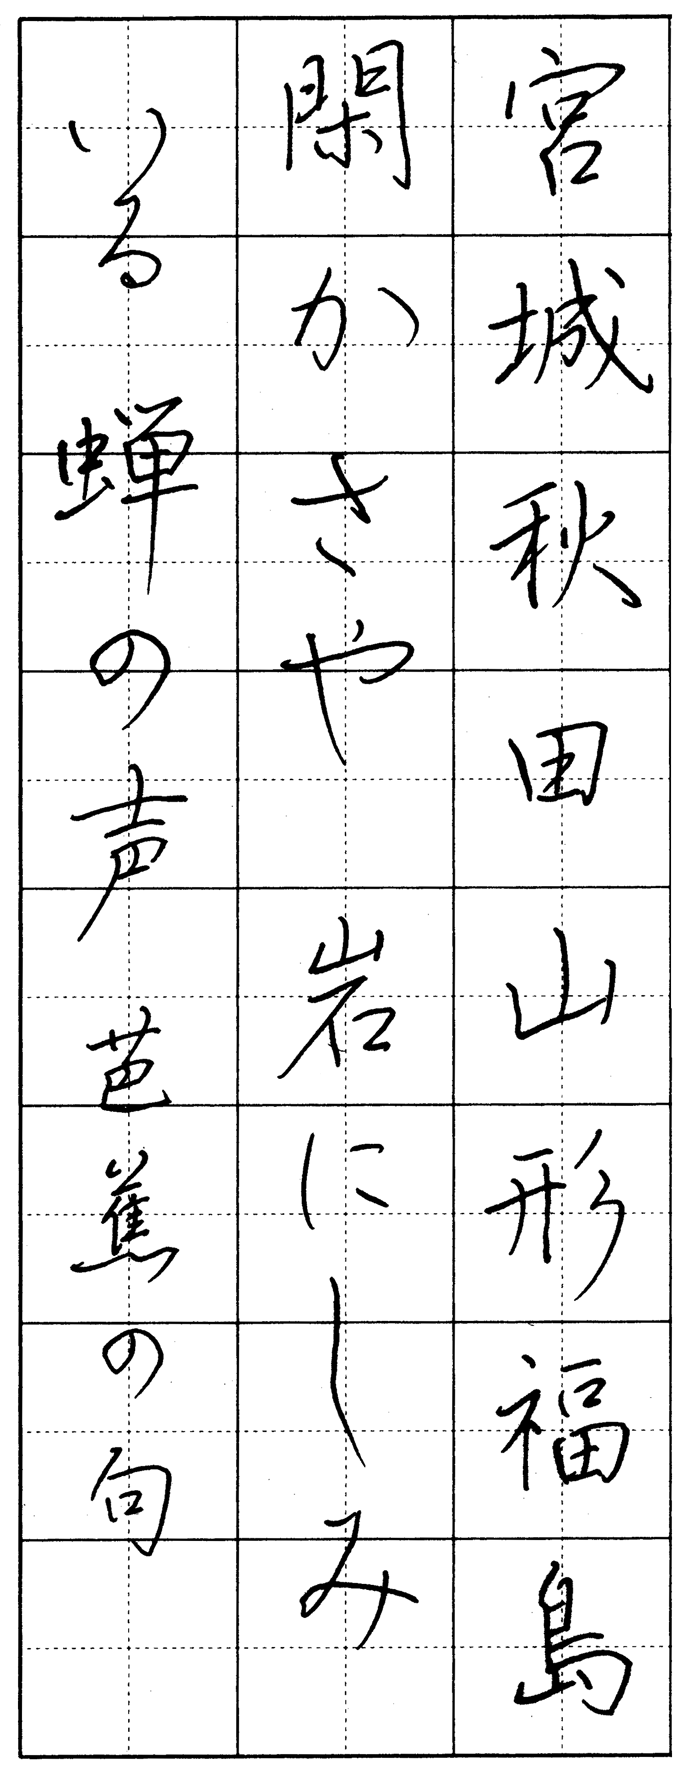 宮城秋田山形福島
閑かさや 岩にしみ
いる 蝉の声 芭蕉の句